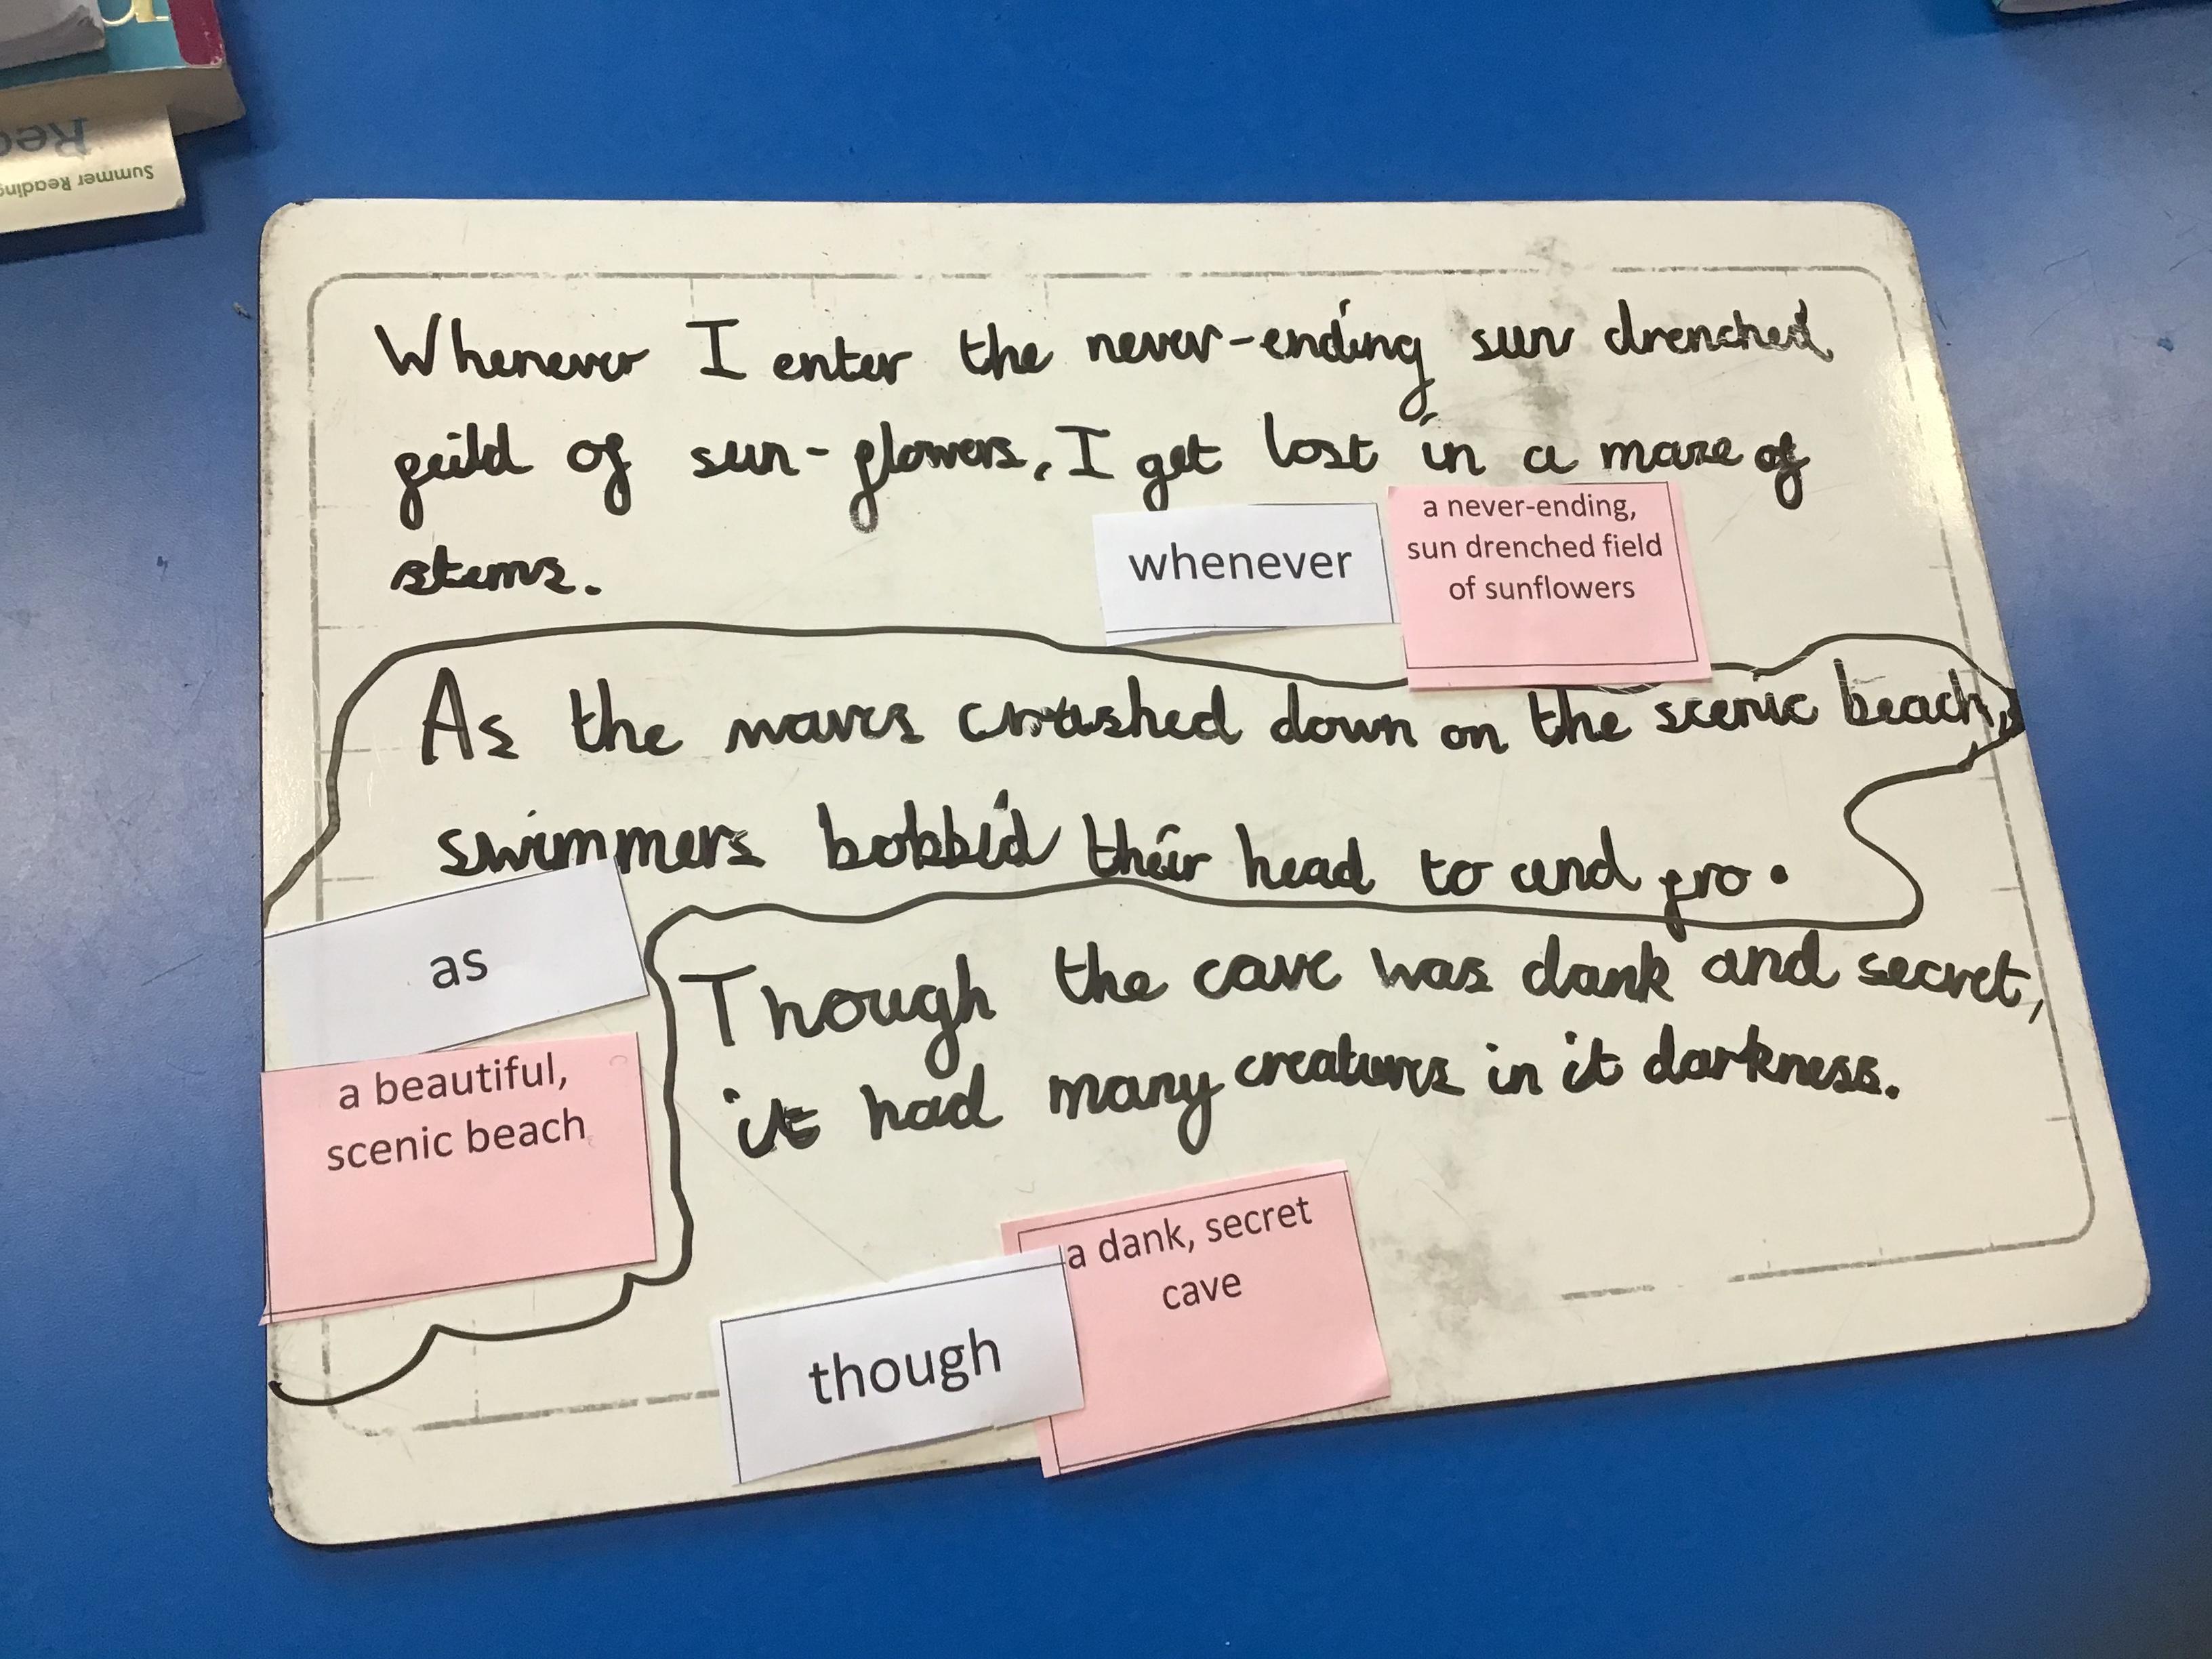 Whenever I enter the never-ending sun drenched
feild of sun-flowers, I get lost in a maze of
stems.
whenever
a never-ending,
sun drenched field
of sunflowers
As the waves crashed down on the scenic beach,
swimmers bobbid their head to and fro.
as
a beautiful,
scenic beach
Though the cave was dank and secret,
it had many creatures in it darkness.
a dank, secret
cave
though
Summer Reading